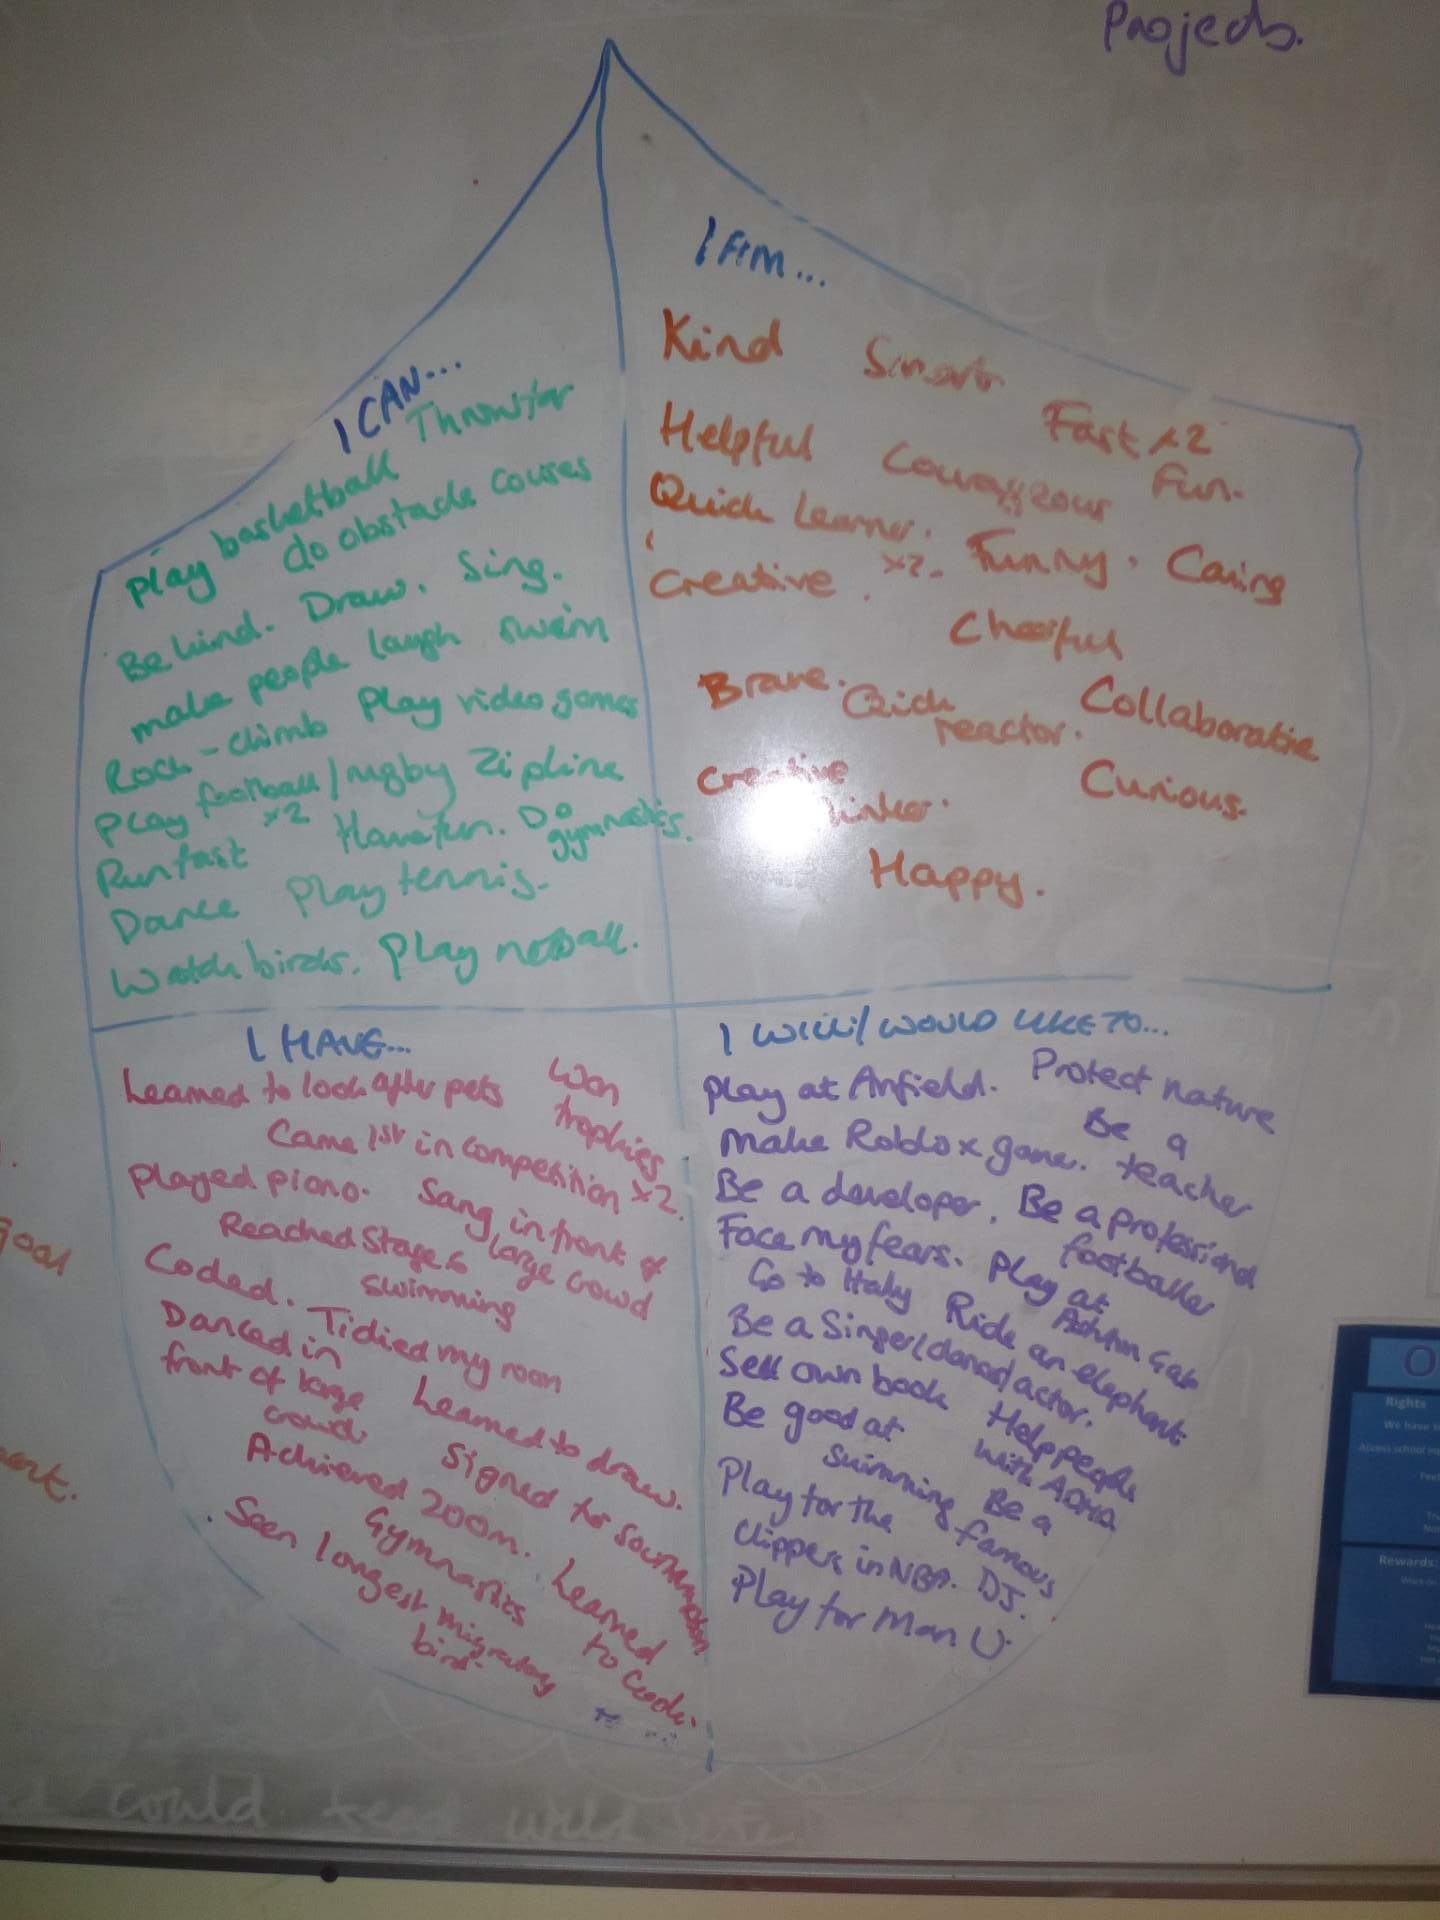 Projects.
I CAN...
Throw far
play basketball
do obstacle couses
Be kind. Draw. Sing.
make people laugh swim
Rock-climb Play video games
Play football/rugby Zipline
x2
Run fast Have fun. Do gymnastics.
Dance Play tennis.
Watch birds. Play netball.
I AM...
Kind Smart
Fast x2
Helpful Courageous Fun.
Quick Learner. Funny. Caring
Creative. x2.
Cheerful
Brave. Quick reactor. Collaborative
Creative Curious.
Happy.
I HAVE...
Learned to look after pets Won trophies
Came 1st in competition x2.
Played piano. Sang in front of large crowd
Reached Stage 6 swimming
Coded. Tidied my room
Danced in front of large crowd
Learned to draw.
Signed for
Achieved 200m.
Gymnastics Learned to code.
Seen longest migratory bird.
I WILL/WOULD LIKE TO...
play at Anfield. Protect nature
Make Roblox game. Be a teacher
Be a developer. Be a professional footballer
Face my fears. Play at Ashton Gate
Go to Italy Ride an elephant
Be a Singer/dancer/actor.
Sell own book Help people with ADHD
Be good at swimming Be a famous DJ.
Play for the Clippers in NBA.
Play for Man U.
goal
could
Rights
Rewards: